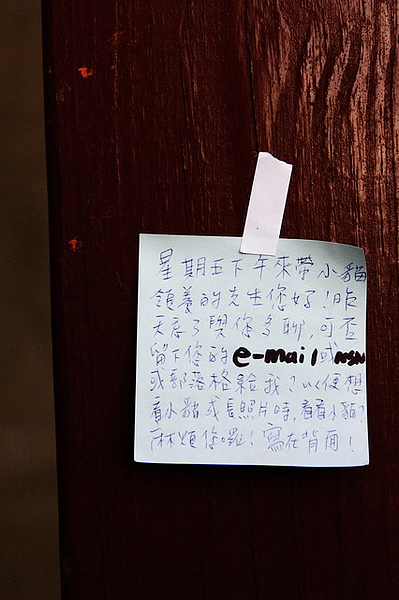 星期五下午來帶小貓
領養的先生您好!昨
天忘了與您多聊,可否
留下您的e-mail或MSN
或部落格給我?以便想
看小貓或長照片時,看看小貓?
麻煩您囉!寫在背面!